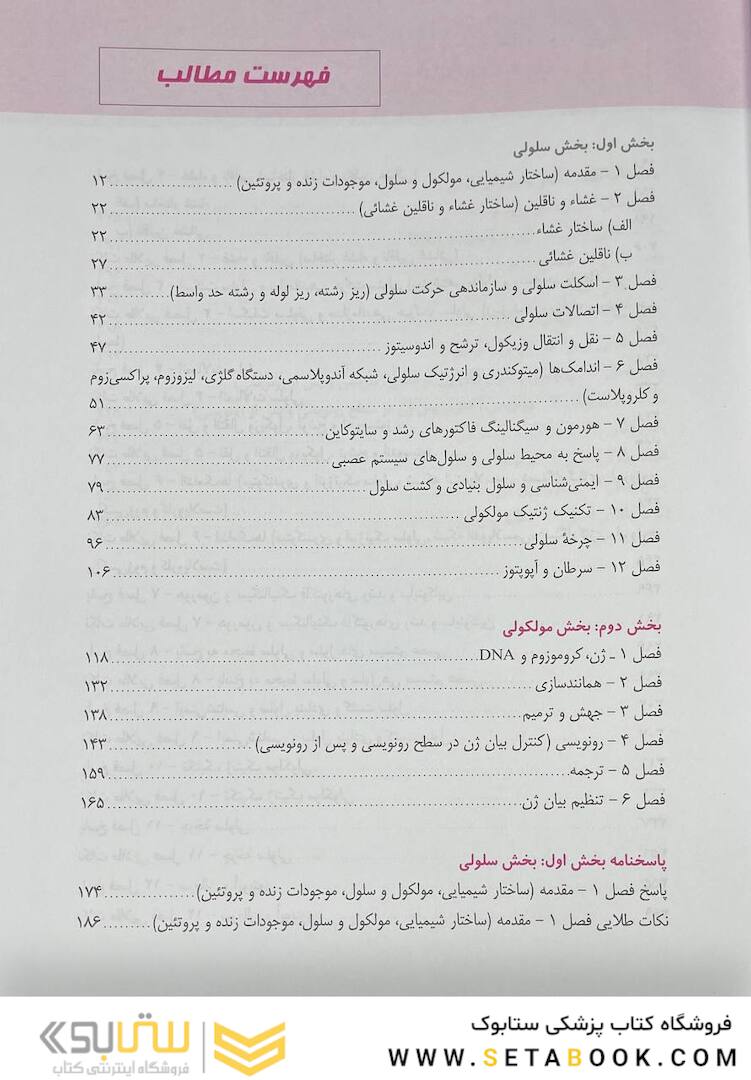 فهرست مطالب
بخش اول: بخش سلولی
فصل ۱ - مقدمه (ساختار شیمیایی، مولکول و سلول، موجودات زنده و پروتئین) ۱۲
فصل ۲ - غشاء و ناقلین (ساختار غشاء و ناقلین غشائی) ۲۲
الف) ساختار غشاء ۲۲
ب) ناقلین غشائی ۲۷
فصل ۳ - اسکلت سلولی و سازماندهی حرکت سلولی (ریز رشته، ریز لوله و رشته حد واسط) ۳۳
فصل ۴ - اتصالات سلولی ۴۲
فصل ۵ - نقل و انتقال وزیکول، ترشح و اندوسیتوز ۴۷
فصل ۶ - اندامک‌ها (میتوکندری و انرژتیک سلولی، شبکه آندوپلاسمی، دستگاه گلژی، لیزوزوم، پراکسی‌زوم
و کلروپلاست) ۵۱
فصل ۷ - هورمون و سیگنالینگ فاکتورهای رشد و سایتوکاین ۶۳
فصل ۸ - پاسخ به محیط سلولی و سلول‌های سیستم عصبی ۷۷
فصل ۹ - ایمنی‌شناسی و سلول بنیادی و کشت سلول ۷۹
فصل ۱۰ - تکنیک ژنتیک مولکولی ۸۳
فصل ۱۱ - چرخهٔ سلولی ۹۶
فصل ۱۲ - سرطان و آپوپتوز ۱۰۶
بخش دوم: بخش مولکولی
فصل ۱ ـ ژن، کروموزوم و DNA ۱۱۸
فصل ۲ - همانندسازی ۱۳۲
فصل ۳ - جهش و ترمیم ۱۳۸
فصل ۴ - رونویسی (کنترل بیان ژن در سطح رونویسی و پس از رونویسی) ۱۴۳
فصل ۵ - ترجمه ۱۵۹
فصل ۶ - تنظیم بیان ژن ۱۶۵
پاسخنامه بخش اول: بخش سلولی
پاسخ فصل ۱ - مقدمه (ساختار شیمیایی، مولکول و سلول، موجودات زنده و پروتئین) ۱۷۴
نکات طلایی فصل ۱ - مقدمه (ساختار شیمیایی، مولکول و سلول، موجودات زنده و پروتئین) ۱۸۶
فروشگاه کتاب پزشکی ستابوک
WWW.SETABOOK.COM
ستابوک
فروشگاه اینترنتی کتاب